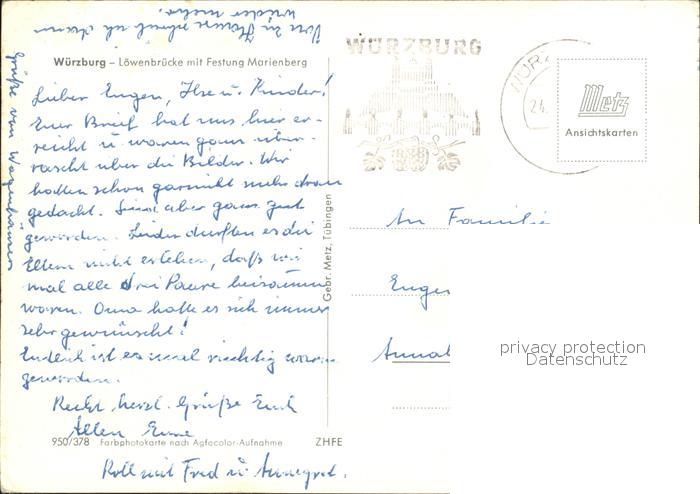 Von zu Hause schreib ich dann
wieder mehr.
Grüße von
Würzburg – Löwenbrücke mit Festung Marienberg
Lieber Eugen, Ilse u. Kinder!
Euer Brief hat uns hier er-
reicht u. waren ganz über-
rascht über die Bilder. Wir
hatten schon garnicht mehr dran
gedacht. Sind aber ganz gut
geworden. Leider durften es die
Eltern nicht erleben, daß wir
mal alle drei Paare beisammen
waren. Oma hatte es sich immer
sehr gewünscht!
Endlich ist es mal richtig warm
geworden.
Recht herzl. Grüße Euch
Allen Eure
Rolf mit Fred u. Annegret.
950/378 Farbphotokarte nach Agfacolor-Aufnahme ZHFE
Gebr. Metz, Tübingen
WÜRZBURG
24.
Metz
Ansichtskarten
An Familie
Eugen
privacy protection
Datenschutz